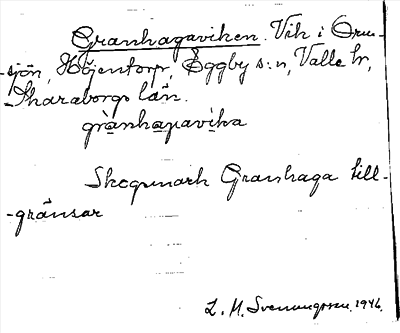 Granhagaviken. Vik i Orm-
-sjön, Höjentorp, Eggby s:n, Valle hr,
Skaraborgs län.
grànhapavìka
Skogsmark Granhaga till-
-gränsar
L. M. Svenungsson. 1946.